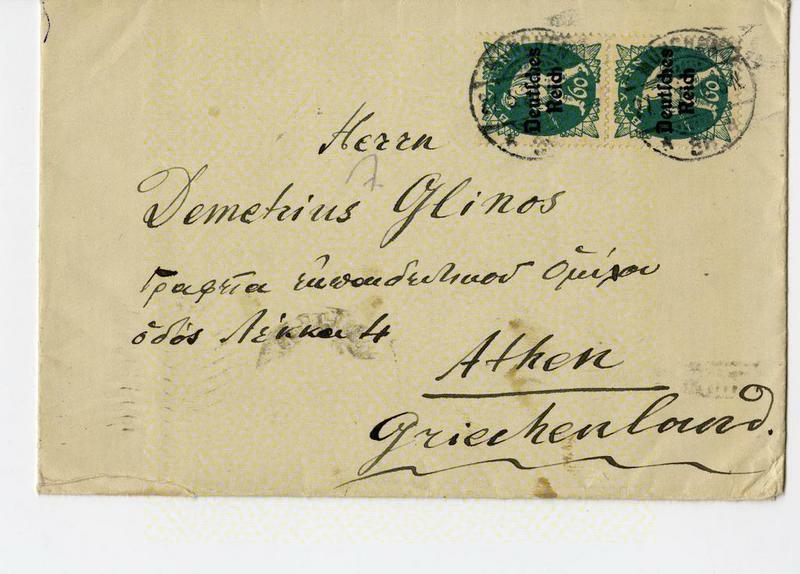 MÜNCHEN
Deutsches Reich 60
Deutsches Reich 60
Herrn
Demetrius Glinos
Γραφεῖα ἐκπαιδευτικοῦ Ὁμίλου
ὁδὸς Λέκκα 4
Athen
Griechenland.